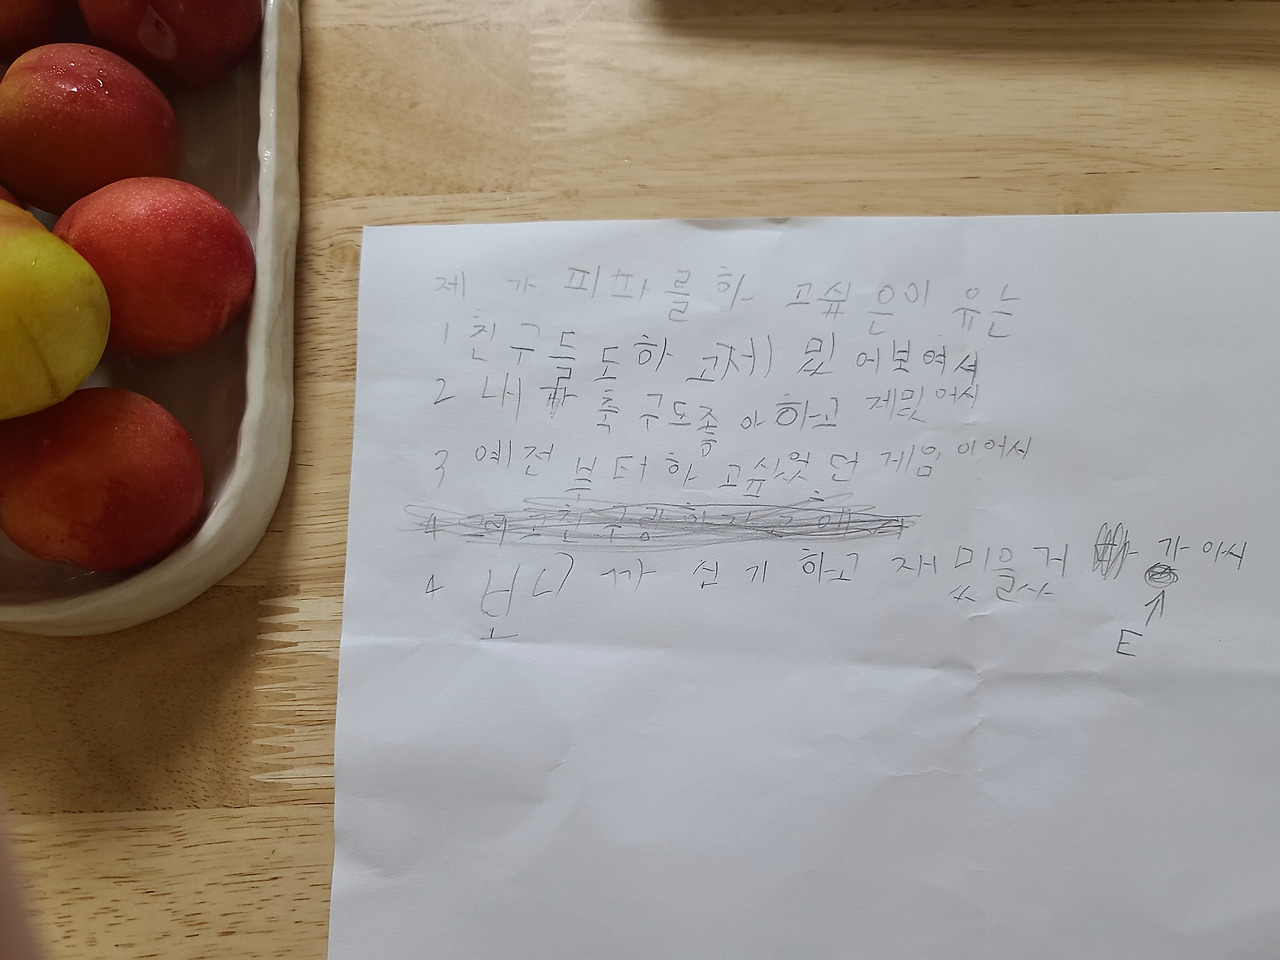 제가 피파를 하고 싶은이유는
1 친구들도하고제미 밌어보여서
2 내 축구도좋아하고 제밌어서
3 예전부터하고싶었던게임이어서
4 보니까 신기하고 재미있을거 가아서
E